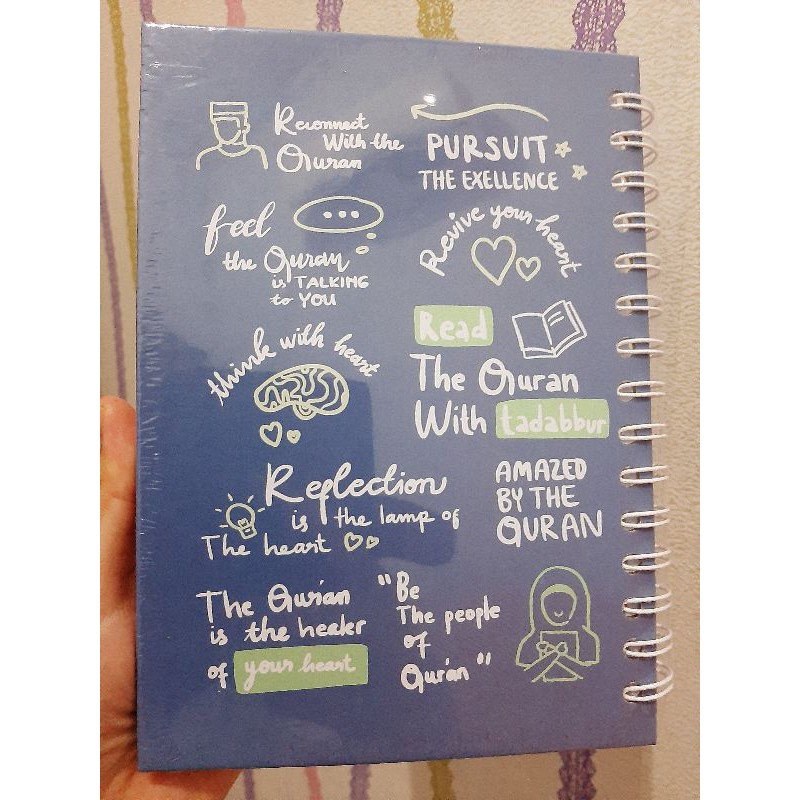 Reconnect
With the
Quran
PURSUIT
THE EXELLENCE
feel
the Quran
is TALKING
to YOU
Revive your heart
think with heart
Read
The Quran
With tadabbur
Reflection
is the lamp of
The heart
AMAZED
BY THE
QURAN
The Qur'an
is the healer
of your heart
"Be
The people
of
Qur'an"